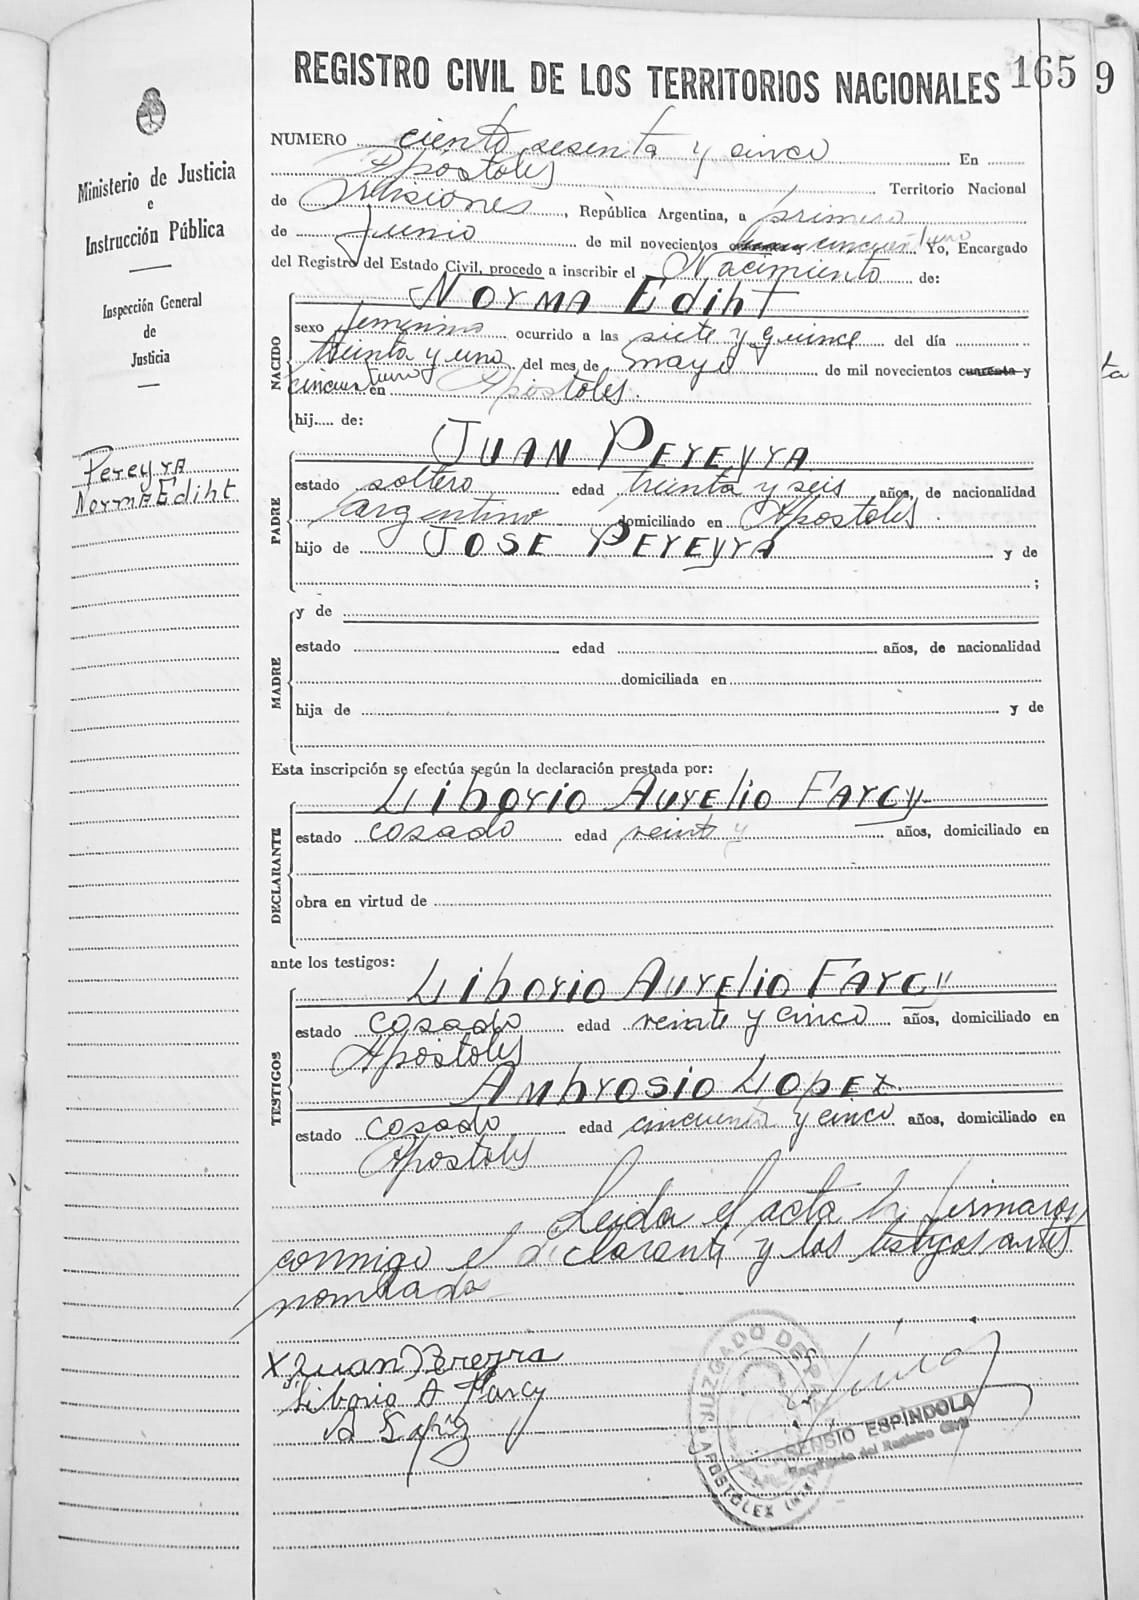 REGISTRO CIVIL DE LOS TERRITORIOS NACIONALES
165
9
Ministerio de Justicia
e
Instrucción Pública
Inspección General
de
Justicia
Pereyra
Norma Ediht
NUMERO ciento sesenta y cinco En
Apóstoles Territorio Nacional
de Misiones, República Argentina, a primero
de Junio de mil novecientos cincuentiuno Yo, Encargado
del Registro del Estado Civil, procedo a inscribir el Nacimiento de:
NACIDO
NORMA Ediht
sexo femenino ocurrido a las siete y quince del día
treinta y uno del mes de mayo de mil novecientos cuarenta y
cincuentiuno en Apóstoles.
hij de:
PADRE
JUAN PEREYRA
estado soltero edad treinta y seis años, de nacionalidad
argentino domiciliado en Apóstoles.
hijo de JOSE PEREYRA y de
;
MADRE
y de
estado edad años, de nacionalidad
domiciliada en
hija de y de
Esta inscripción se efectúa según la declaración prestada por:
DECLARANTE
Liborio Aurelio Farcy
estado casado edad veinte y años, domiciliado en
obra en virtud de
ante los testigos:
TESTIGOS
Liborio Aurelio Farcy
estado casado edad veinte y cinco años, domiciliado en
Apóstoles
Ambrosio Lopez
estado casado edad cincuenta y cinco años, domiciliado en
Apóstoles
Leida el acta la firmaron
conmigo el declarante y los testigos antes
nombrados
X Juan Pereyra
Liborio A Farcy
A López
JUZGADO DE PAZ
APOSTOLES
ESPINDOLA
Encargado del Registro Civil
ta